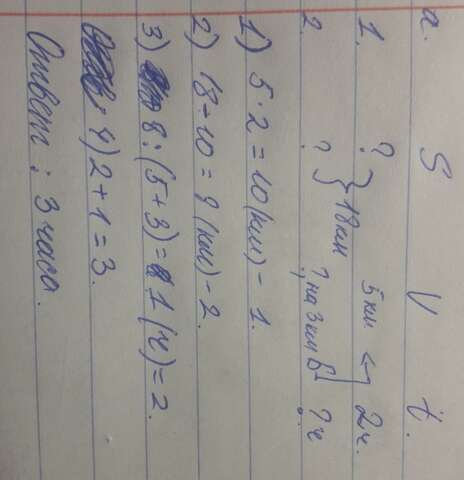 а. S V t.
1. ? } 18 км 5 км ← } 2 ч.
2. ? ?, на 3 км б ? ч
1) 5 · 2 = 10 (км) - 1.
2) 18 - 10 = 8 (км) - 2.
3) 8 : (5 + 3) = 1 (ч) = 2.
4) 2 + 1 = 3.
Ответ: 3 часа.